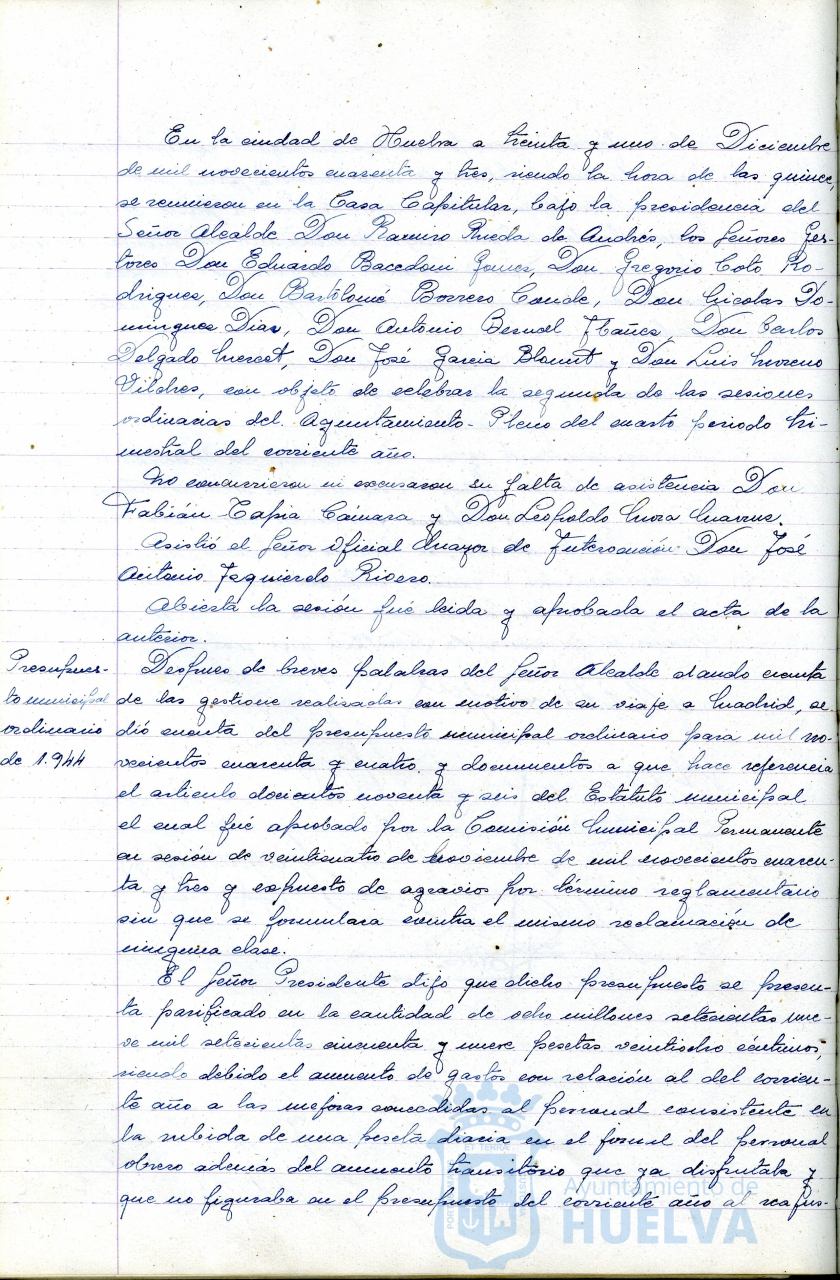 En la ciudad de Huelva a treinta y uno de Diciembre
de mil novecientos cuarenta y tres, siendo la hora de las quince,
se reunieron en la Casa Capitular, bajo la presidencia del
Señor Alcalde Don Ramiro Rueda de Andrés, los Señores Ges-
tores Don Eduardo Bacedoni Gomez, Don Gregorio Coto Ro-
driguez, Don Bartolomé Borrero Conde, Don Nicolas Do-
minguez Dias, Don Antonio Bernal Ibañez, Don Carlos
Delgado Mercet, Don José Garcia Blount y Don Luis Moreno
Vildres, con objeto de celebrar la segunda de las sesiones
ordinarias del Ayuntamiento-Pleno del cuarto periodo tri-
mestral del corriente año.
No concurrieron ni excusaron su falta de asistencia Don
Fabián Tapia Cámara y Don Leopoldo Mora
Asistió el Señor Oficial Mayor de Intervención Don José
Antonio Izquierdo Rivero.
Abierta la sesión fué leida y aprobada el acta de la
anterior.
Presupues-
to municipal
ordinario
de 1.944
Despues de breves palabras del Señor Alcalde dando cuenta
de las gestione realizadas con motivo de su viaje a Madrid, se
dió cuenta del presupuesto municipal ordinario para mil no-
vecientos cuarenta y cuatro y documentos a que hace referencia
el articulo docientos noventa y seis del Estatuto municipal
el cual fué aprobado por la Comisión Municipal Permanente
en sesión de veinticuatro de Noviembre de mil novecientos cuaren-
ta y tres y expuesto de agravios por término reglamentario
sin que se formulara contra el mismo reclamación de
ninguna clase.
El Señor Presidente dijo que dicho presupuesto se presen-
ta parificado en la cantidad de ocho millones setecientas nue-
ve mil setecientas cincuenta y nueve pesetas veintiocho céntimos,
siendo debido el aumento de gastos con relación al del corrien-
te año a las mejoras concedidas al personal consistente en
la subida de una peseta diaria en el jornal del personal
obrero además del aumento transitorio que ya disfrutaba y
que no figuraba en el presupuesto del corriente año al reajus-
Ayuntamiento de
HUELVA